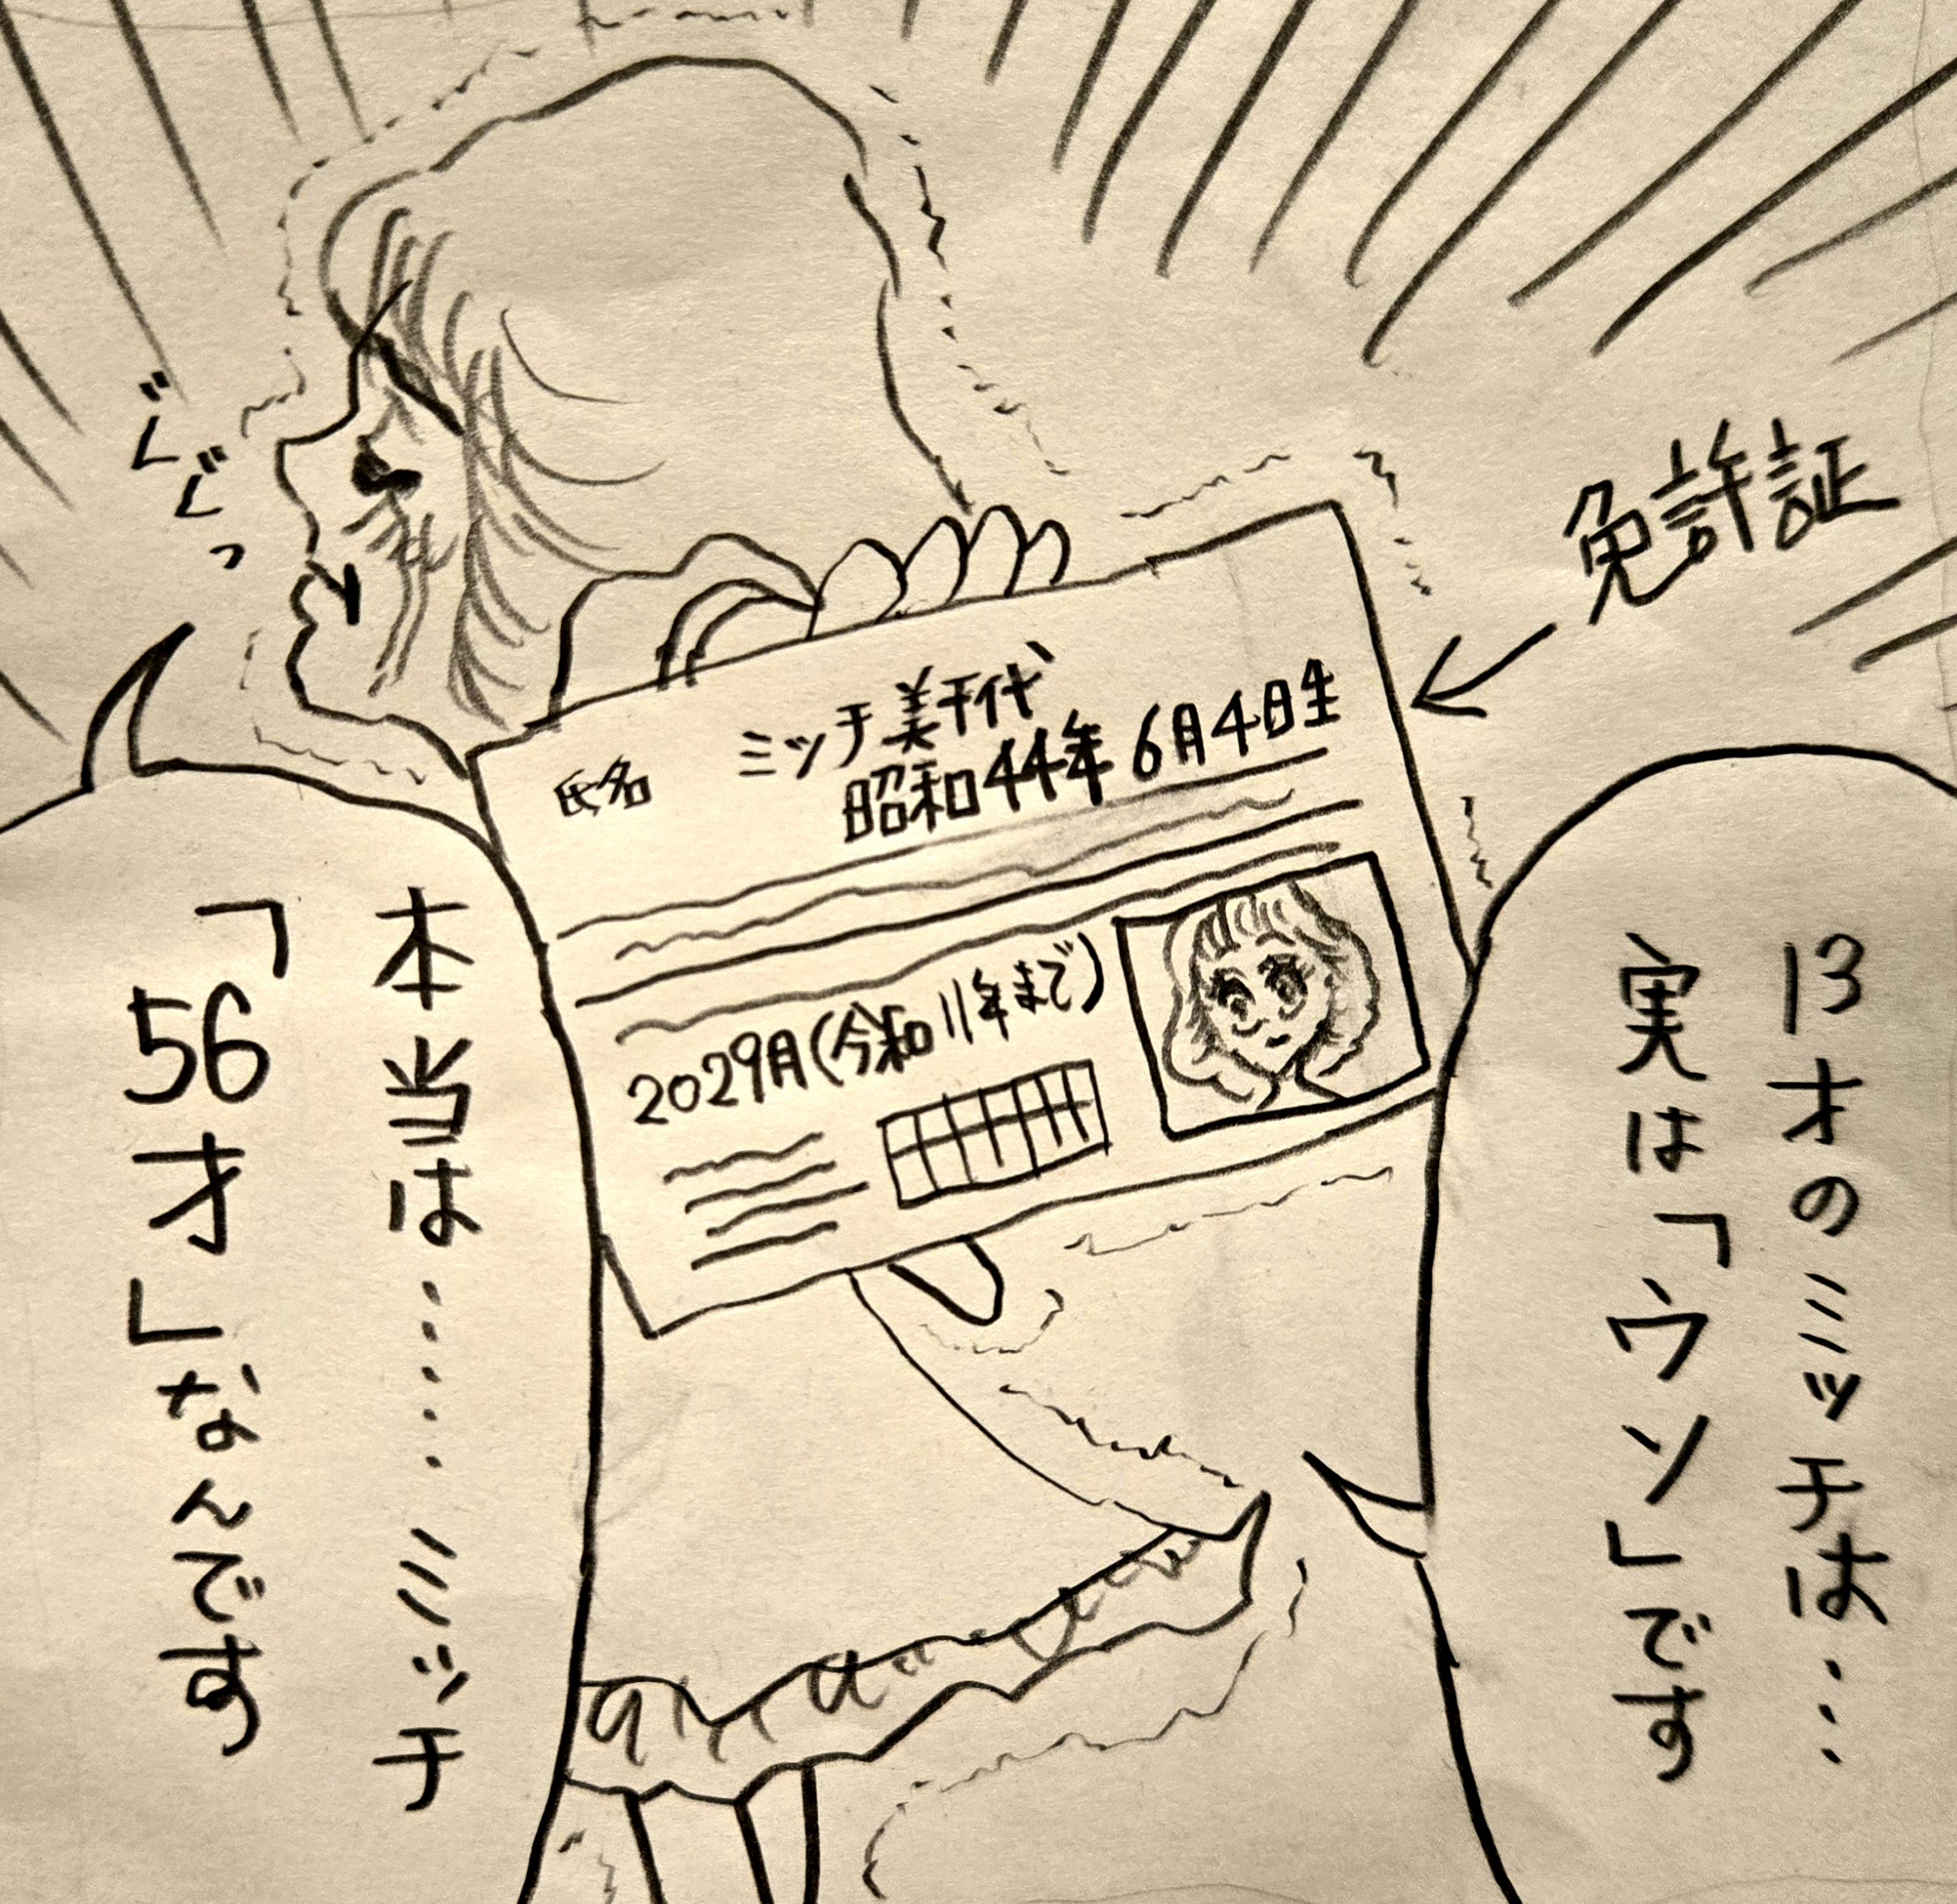 13才のミッチは……
実は「ウソ」です
免許証
氏名 ミッチ美千代
昭和44年6月4日生
2029月(令和11年まで)
本当は……ミッチ
「56才」なんです